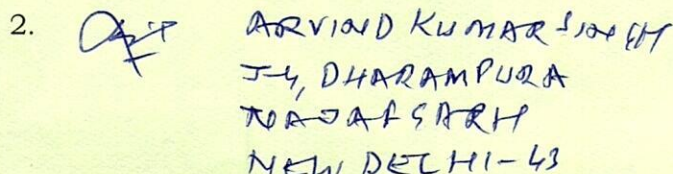 2. ARVIND KUMAR SINGH
J-4, DHARAMPURA
NAJAFGARH
NEW DELHI-43